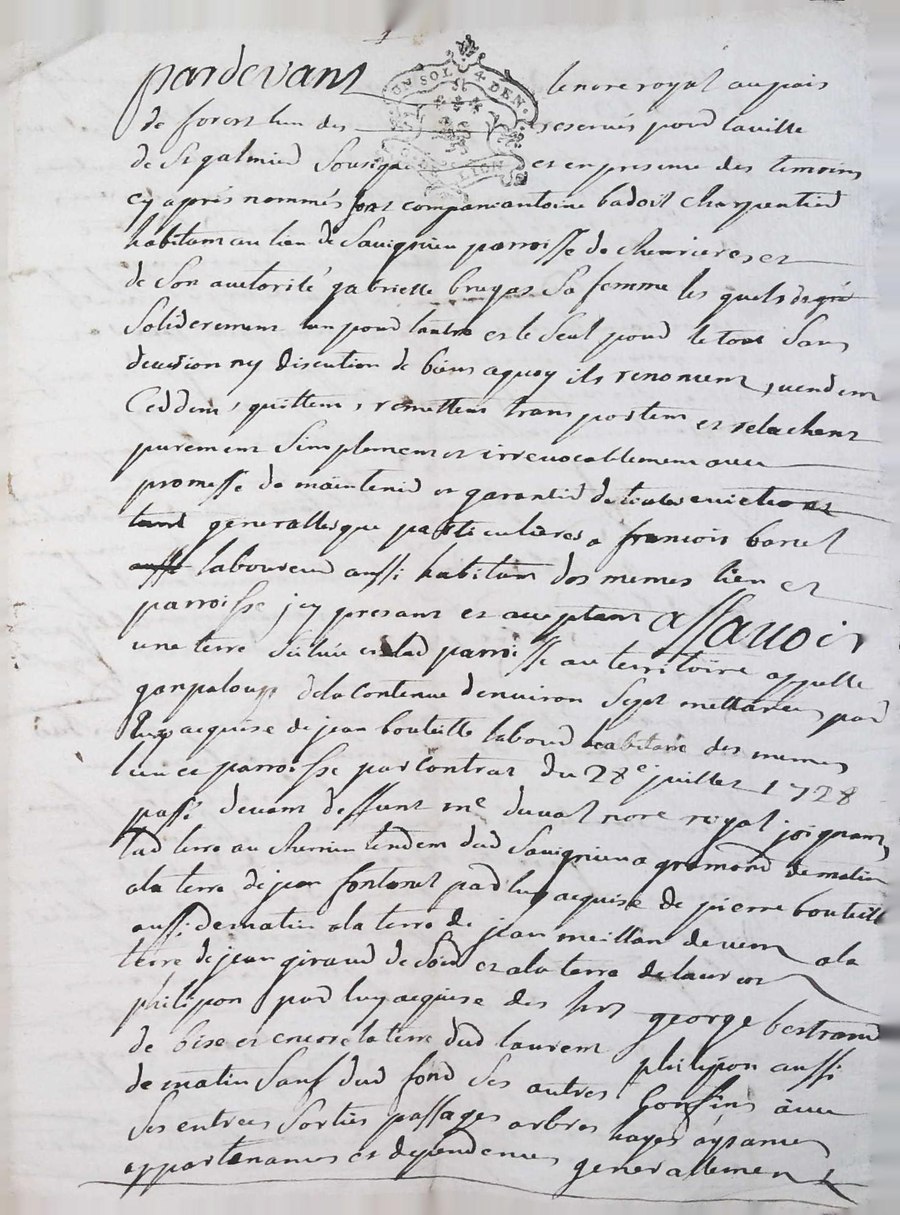 pardevant le nore royal au pais
UN SOL 4 DEN.
de forest lun des reservés pour la ville
de St galmier Sousigné et en presence des temoins
cy aprés nommés sont comparu antoine badoil charpentier
habitant au lieu de Sauignieu parroisse de cheurieres et
de Son authorité gabrielle bruyas Sa femme les quels de gré
Soliderement lun pour lautre et le Seul pour le tout Sans
deuision ny discution de biens aquoy ils renoncent, uendent
Ceddent, quittent, remettent transportent et relachent
purement Simplement et irreuocablement auec
promesse de maintenir et garantir de toutes euictions
tant generalles que particulieres a francois
laboureur aussi habitant des memes lieu et
parroisse jcy present et aceptant assauoir
une terre Scituée en lad parroisse au territoire appellé
de la Contenue denuiron Sept metterées, par
luy acquise de jean bouteille labour habitant des memes
lieu et parroisse par Contrat du 28e juillet 1728
passé deuant deffunt me duual nore royal joignant
lad terre au chemin tendant dud Sauignieu a gramond de matin
a la terre de jean fontanel par luy acquise de pierre bouteille
aussi de matin a la terre de jean meillan de uent a la
terre de jean giraud de Soir et a la terre de laurent
philipon par luy acquise des hrs george bertrand
de bise et encore la terre dud laurent philipon aussi
de matin Sauf dud fond Ses autres Confins auec
Ses entrées Sorties passages arbres hayes aysances
appartenances et dependences generallement